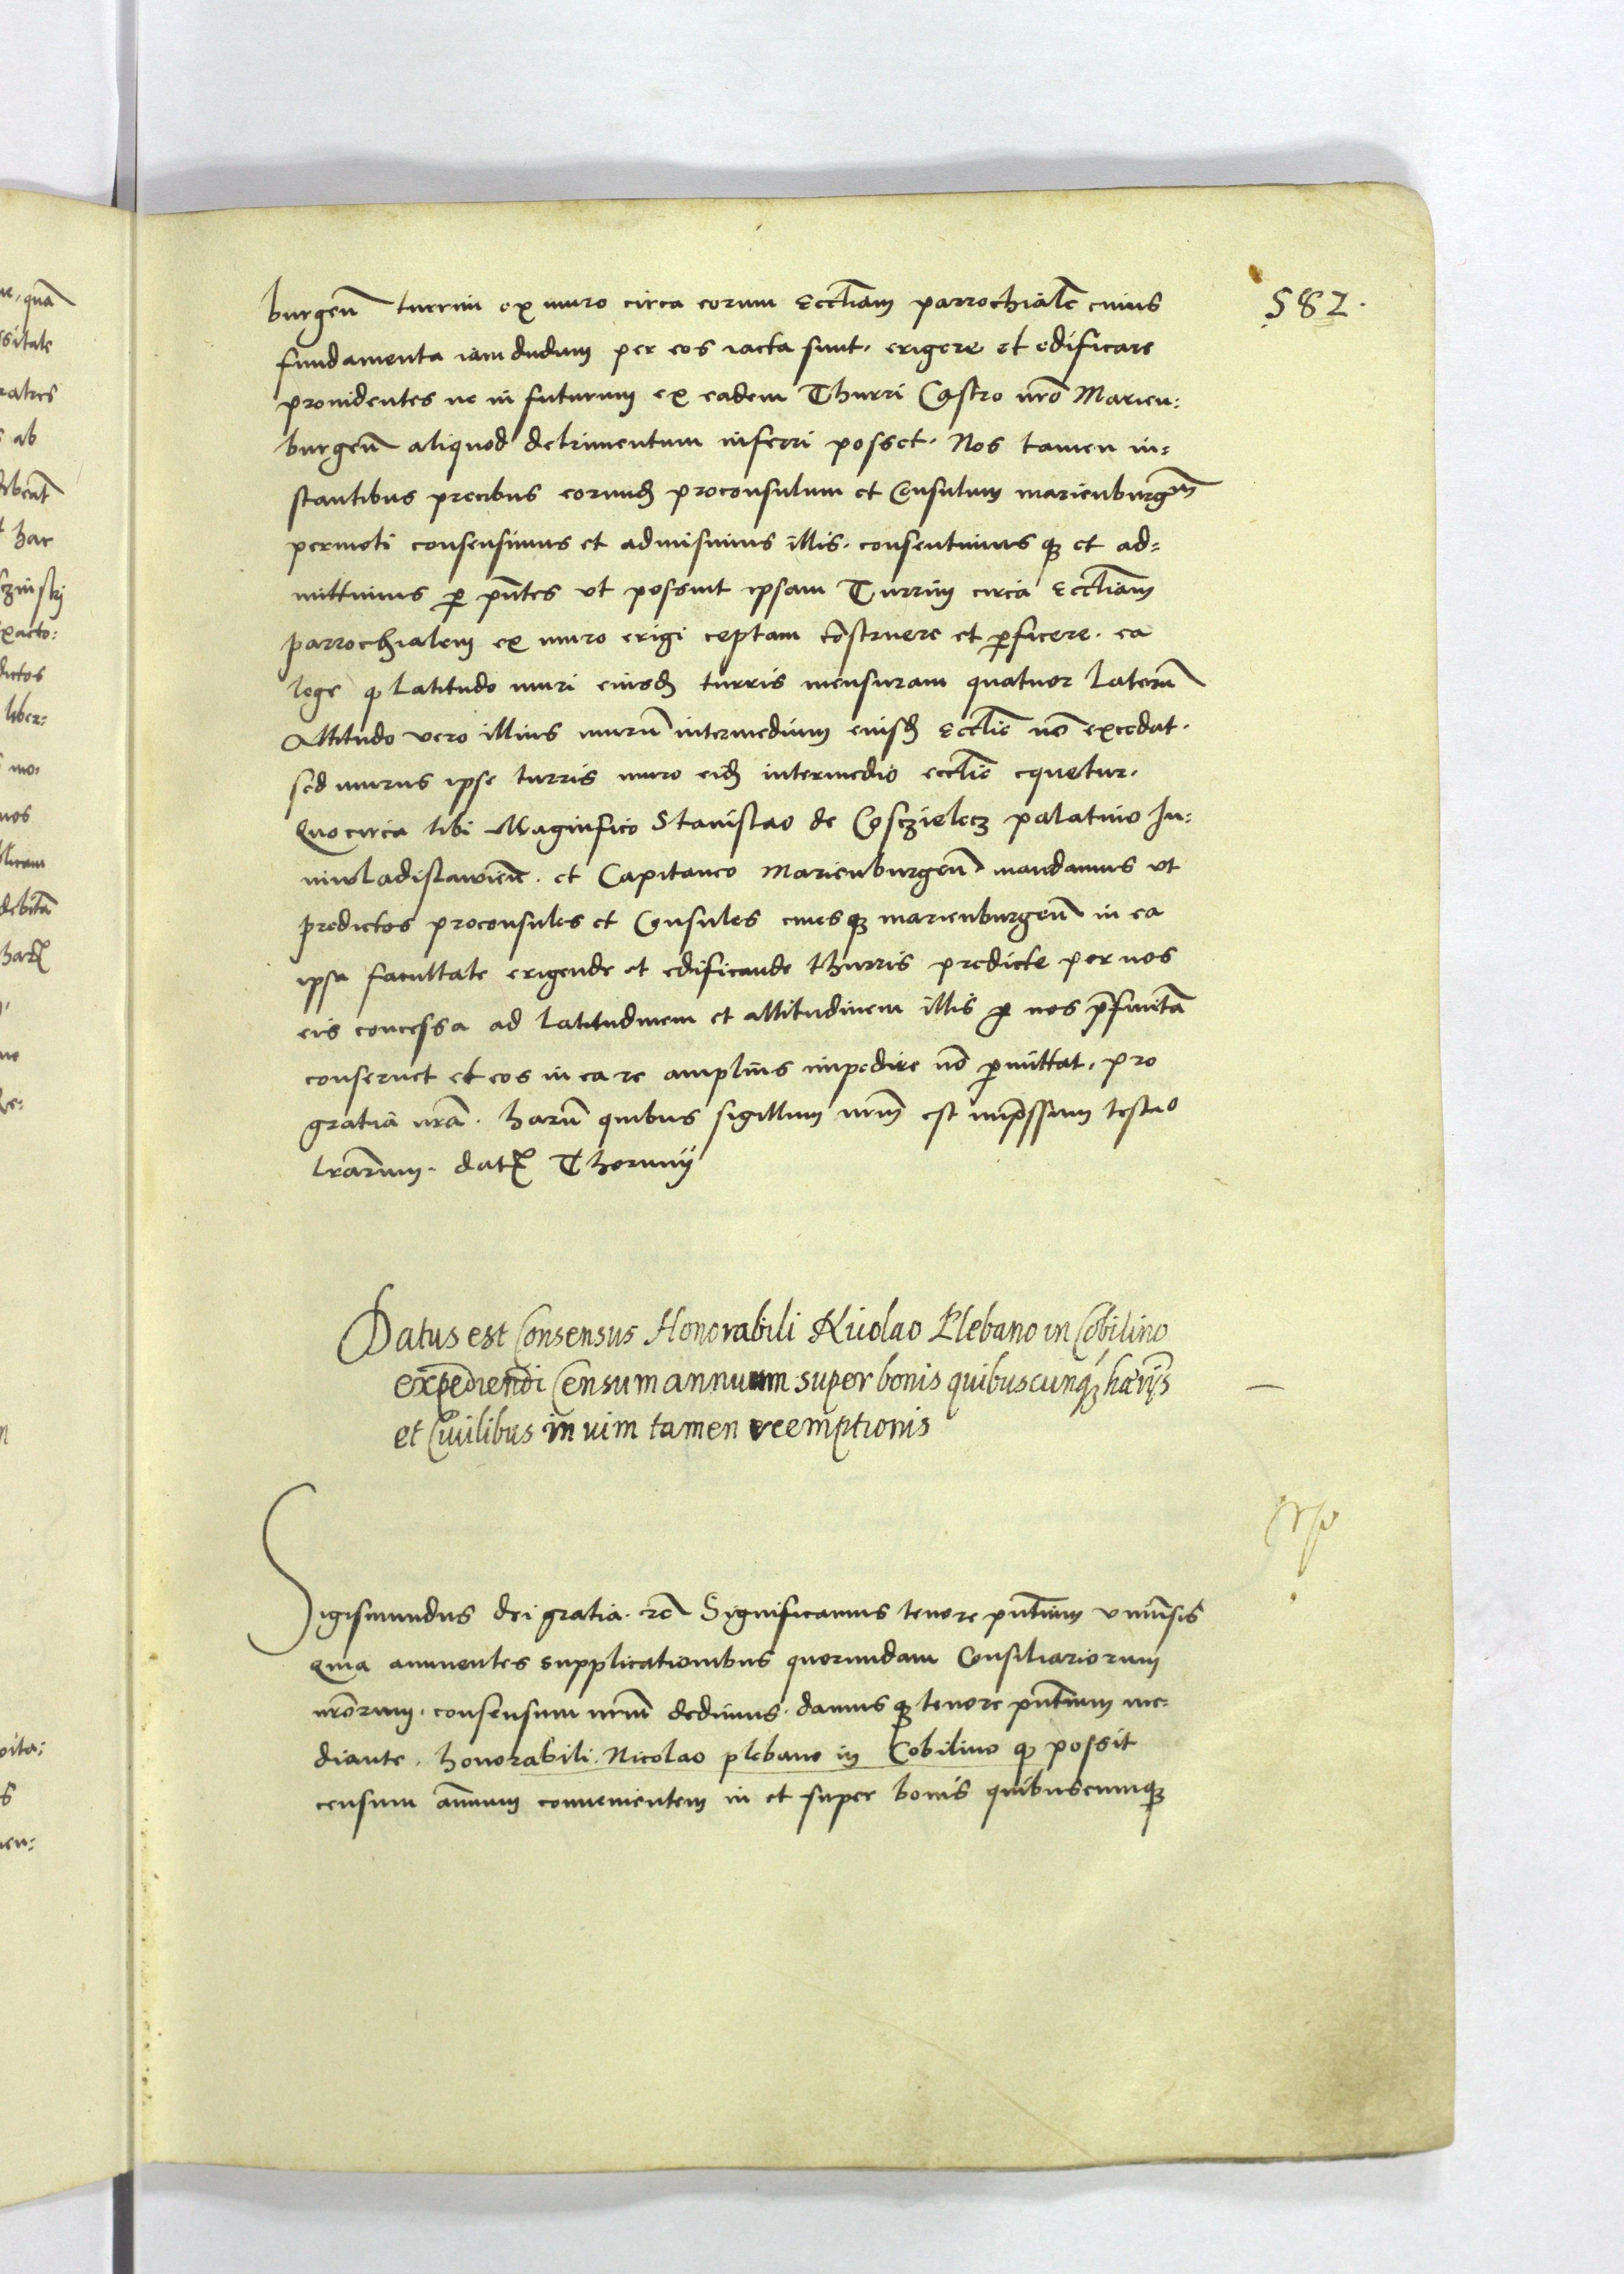 582.
burgen̄ turrim ex muro circa eorum Eccl̄iam parrochialē cuius
fundamenta iam dudum per eos iacta sunt. erigere et edificare
prouidentes ne in futurum ex eadem Thurri Castro nr̄o Marien:
burgen̄ aliquod detrimentum inferri posset. Nos tamen in=
stantibus precibus eorund̄ proconsulum et Consulum marienburgen̄
permoti consensimus et admisimus illis. consentimusqꝫ et ad=
mittimus ꝑ pn̄tes vt possint ipsam Turrim circa Eccl̄iam
parrochialem ex muro erigi ceptam cōstruere et ꝑficere. ea
lege ꝙ latitudo muri eiusd̄ turris mensuram quatuor laterū
Altitudo vero illius murū intermedium eiusd̄ Eccl̄ie nō excedat.
sed murus ipse turris muro eid̄ intermedio eccl̄ie equetur.
Quocirca tibi Magnifico Stanislao de Cosczielecz palatino Ju:
niwladislawien̄. et Capitaneo Marienburgen̄ mandamus vt
predictos proconsules et Consules ciuesqꝫ marienburgen̄ in ea
ipsa facultate erigende et edificande thurris predicte per nos
eis concessa ad latitudinem et altitudinem illis ꝑ nos p̄finitā
conseruet et eos in ea re amplius impedire nō ꝑmittat. pro
gratia nr̄a. harū quibus sigillum nr̄m est imp̄ssum testĩo
lr̄arum. datꝝ Thorunij
Datus est Consensus Honorabili Nicolao Plebano in Cobilino
expediendi Censum annuum super bonis quibuscunqꝫ hær̄ijs
et Ciuilibus in uim tamen reemptionis
Sigismundus dei gratia. rc̄ Significamus tenore pn̄tium vniuersis
Quia annuentes supplicationibus quorundam Consiliariorum
nr̄orum. consensum nr̄m dedimus. damusqꝫ tenore pn̄tium me:
diante. honorabili. Nicolao plebano in Cobilino ꝙ possit
censum ān̄uum conuenientem in et super bonis quibuscunqꝫ